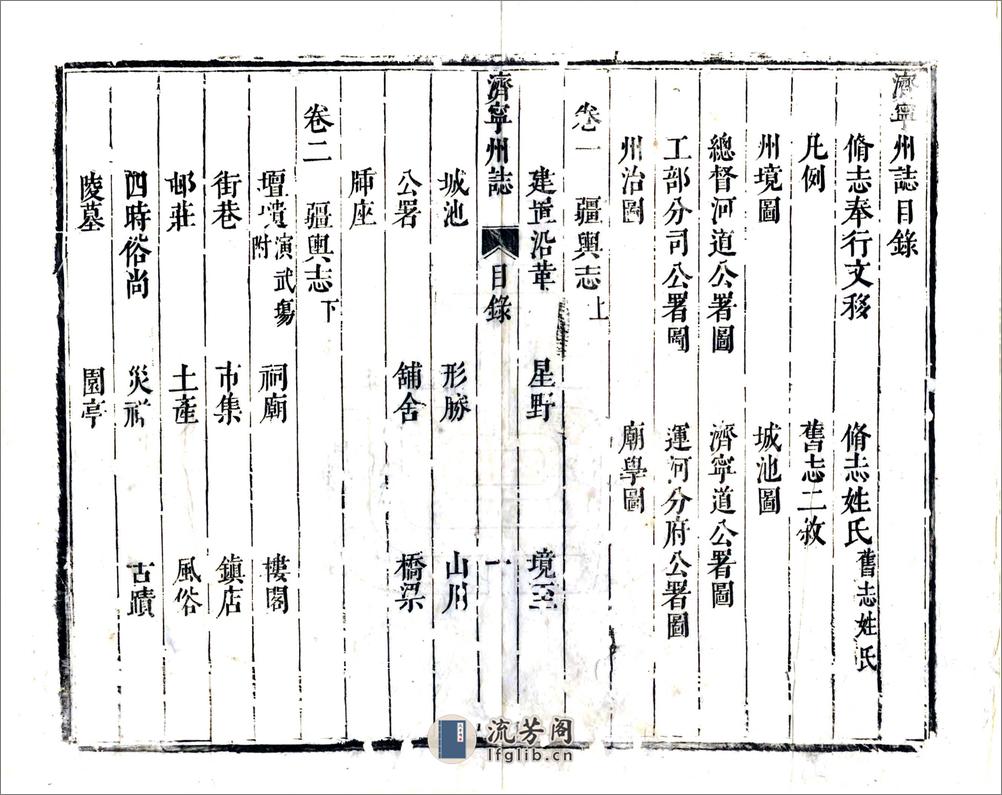 濟寧州誌目錄
脩志奉行文移 脩志姓氏 舊志姓氏
凡例 舊志二敘
州境圖 城池圖
總督河道公署圖 濟寧道公署圖
工部分司公署圖 運河分府公署圖
州治圖 廟學圖
卷一 疆輿志上
建置沿革 星野 境至
濟寧州誌 目錄 一
城池 形勝 山川
公署 舖舍 橋梁
牌座
卷二 疆輿志下
壇壝演武塲附 祠廟 樓閣
街巷 市集 鎮店
邨莊 土產 風俗
四時俗尚 災祥 古蹟
陵墓 園亭
流芳阁
lfglib.cn